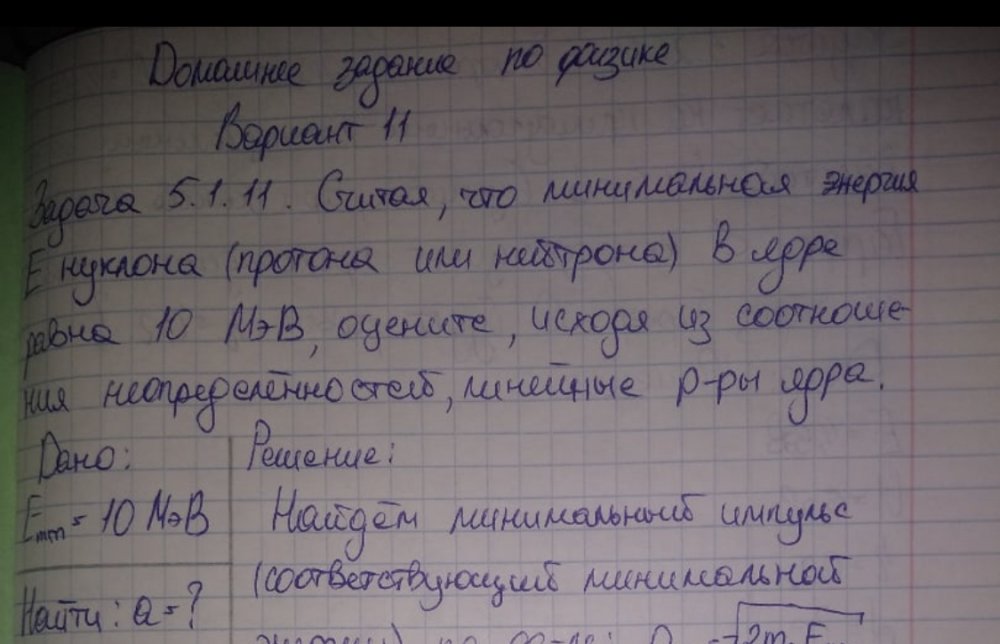 Домашнее задание по физике
Вариант 11
Задача 5.1.11. Считая, что минимальная энергия
E нуклона (протона или нейтрона) в ядре
равна 10 МэВ, оцените, исходя из соотноше-
ния неопределённостей, линейные р-ры ядра.
Дано: Решение:
Emin = 10 МэВ Найдём минимальный импульс
(соответствующий минимальной
Найти: a = ?